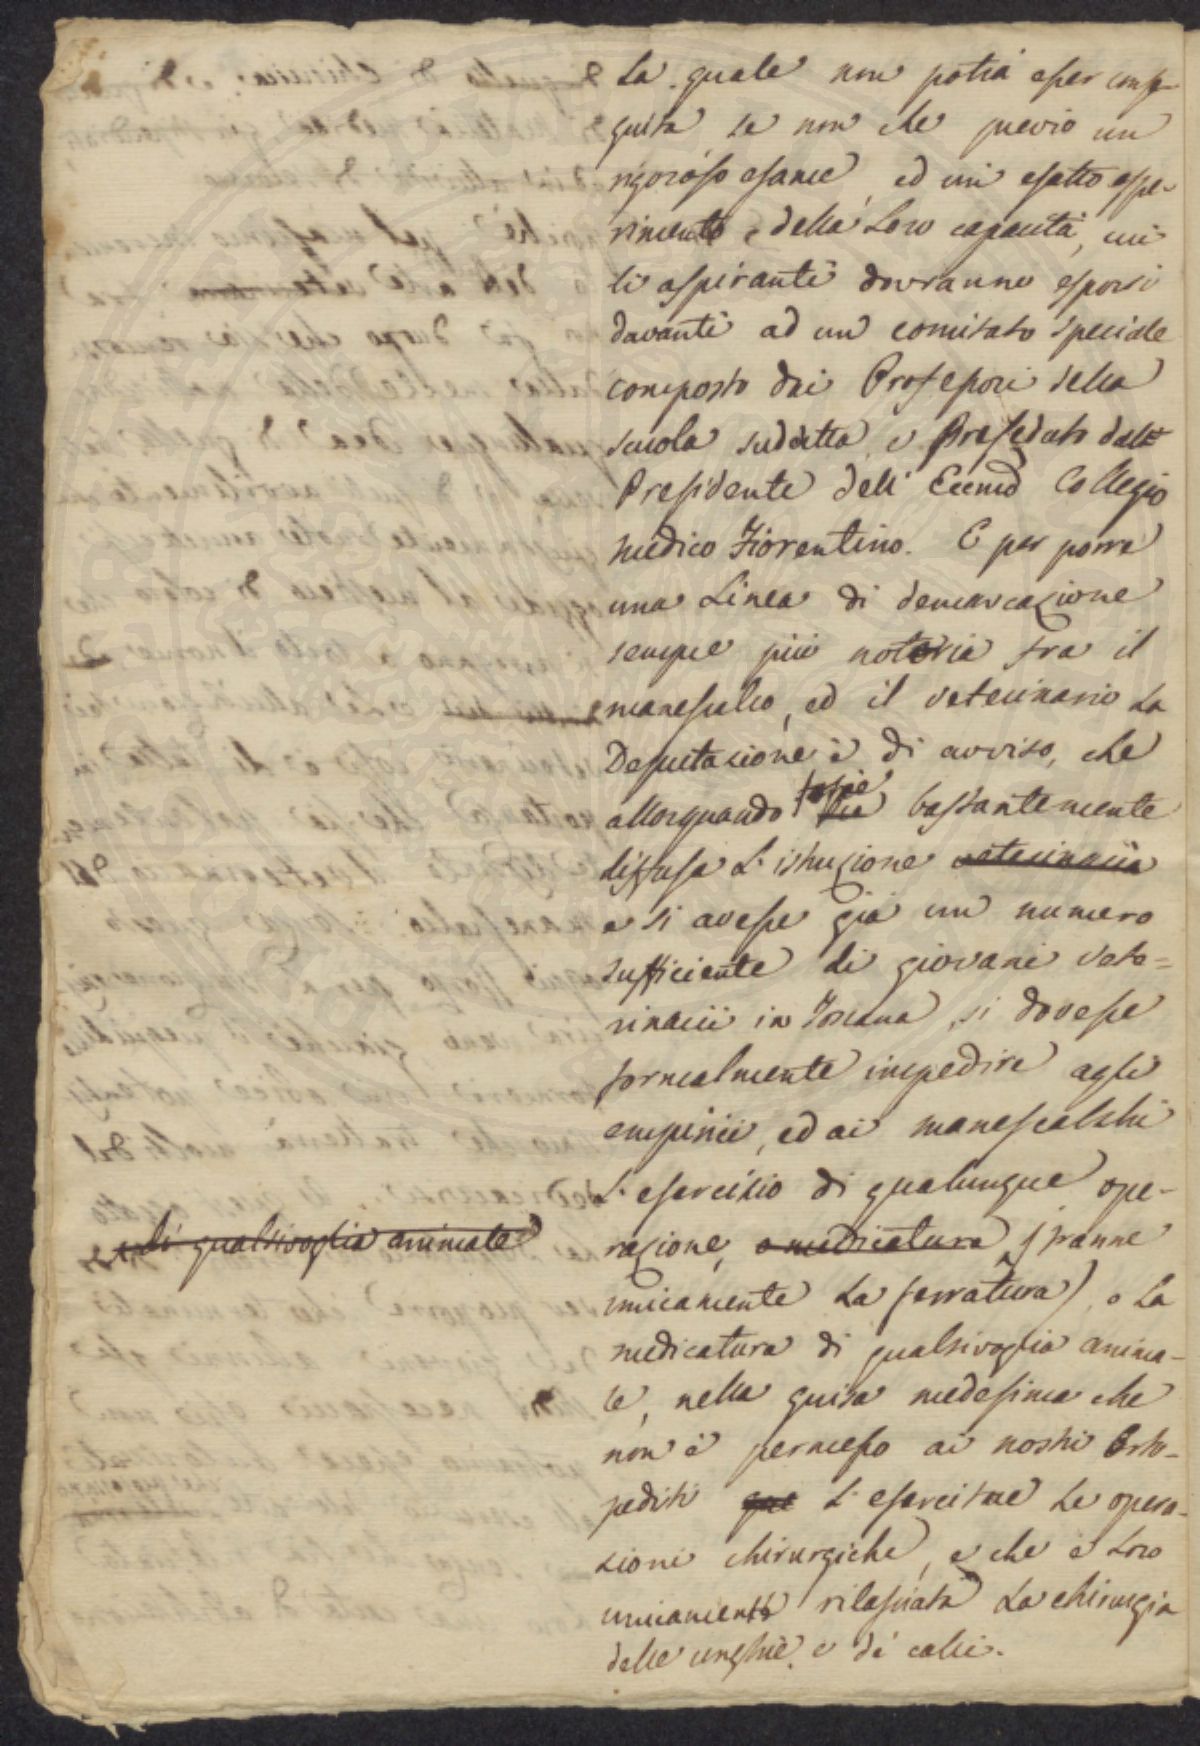 La quale non potrà esser conse-
guita, se non che previo un
rigoroso esame, ed un esatto espe-
rimento della Loro capacità, cui
li aspiranti dovranno esporsi
davanti ad un comitato speciale
composto dai Professori della
scuola suddetta, e Preseduto dall
Presidente dell' Eccmo Collegio
medico Fiorentino. E per porre
una Linea di demarcazione
sempre più notoria fra il
manescalco, ed il veterinario La
Deputazione è di avviso, che
allorquando fosse bastantemente
diffusa L'istruzione veterinaria
e si avesse già un numero
sufficiente di giovani vete=
rinarii in Toscana, si dovesse
formalmente impedire agli
empirici, ed ai manescalchi
L'esercizio di qualunque ope-
di qualsivoglia animale
razione, o medicatura (tranne
unicamente La ferratura), o La
medicatura di qualsivoglia anima-
le, nella guisa medesima che
non è permesso ai nostri Orto-
pedisti que L'esercitare Le opera-
zioni chirurgiche, e che è Loro
unicamente rilasciata La chirurgia
delle unghie, e de' calli.